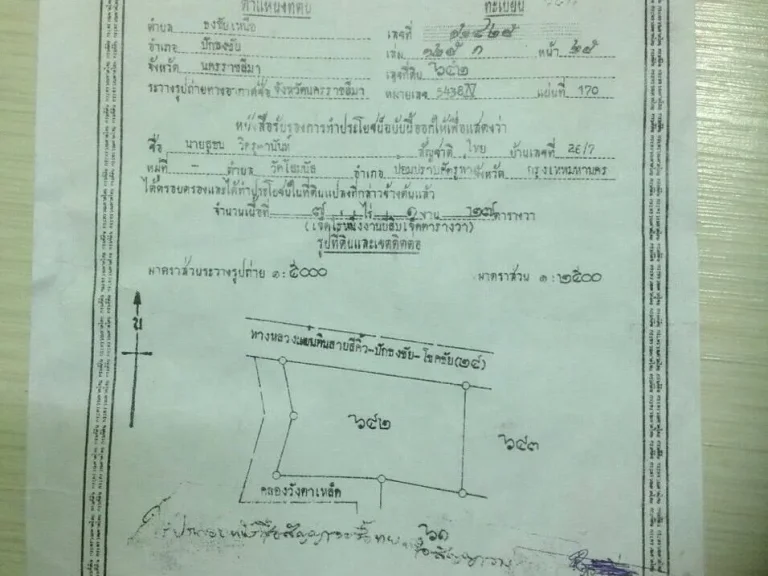 ตำแหน่งที่ดิน ทะเบียน
ตำบล ธงชัยเหนือ เลขที่
อำเภอ ปักธงชัย เล่ม ๑๒๕ ก หน้า ๒๕
จังหวัด นครราชสีมา เลขที่ดิน ๖๔๒
ระวางรูปถ่ายทางอากาศชื่อ จังหวัดนครราชสีมา หมายเลข 5438 IV แผ่นที่ 170
หนังสือรับรองการทำประโยชน์ฉบับนี้ออกให้เพื่อแสดงว่า
ชื่อ นาย สัญชาติ ไทย บ้านเลขที่ 26/7
หมู่ที่ - ตำบล วัดโสมนัส อำเภอ ป้อมปราบศัตรูพ่าย จังหวัด กรุงเทพมหานคร
ได้ครอบครองและได้ทำประโยชน์ในที่ดินแปลงที่กล่าวข้างต้นแล้ว
จำนวนเนื้อที่ ๗ ไร่ ๑ งาน ๒๗ ตารางวา
(เจ็ดไร่หนึ่งงานยี่สิบเจ็ดตารางวา)
รูปที่ดินและเขตติดต่อ
มาตราส่วนระวางรูปถ่าย ๑ : ๕๐๐๐ มาตราส่วน ๑ : ๒๕๐๐
น
ทางหลวงแผ่นดินสายสีคิ้ว-ปักธงชัย-โชคชัย(๒๔)
๖๔๒
๖๔๓
คลองวังตาเหล็ก